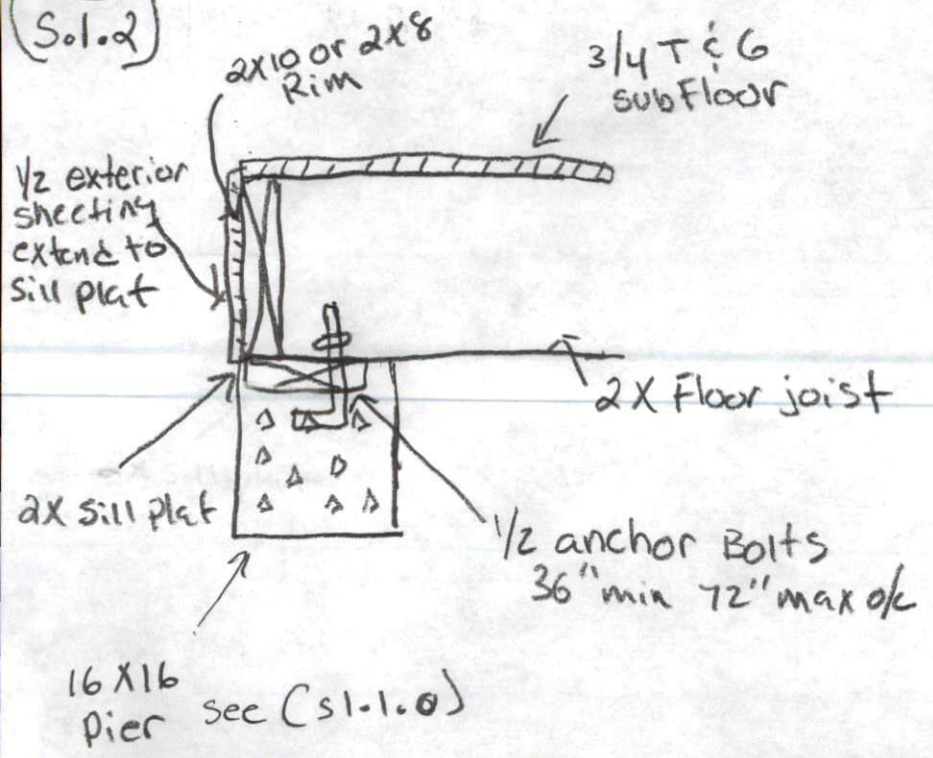 (S.1.2)
2x10 or 2x8
Rim
3/4 T & G
subFloor
1/2 exterior
sheeting
extend to
Sill plat
2X Floor joist
2X Sill plat
1/2 anchor Bolts
36" min 72" max o/c
16 X16
Pier see (s1.1.0)